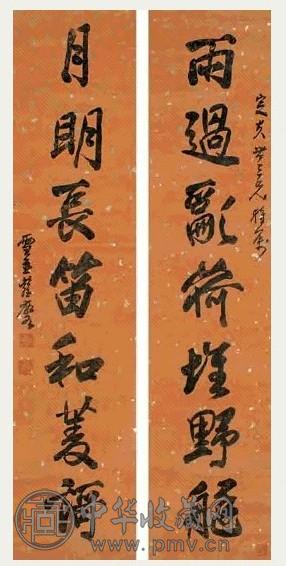 雨過亂荷堆野艇
月明長笛和菱謌
中华收藏网
www.pmv.cn